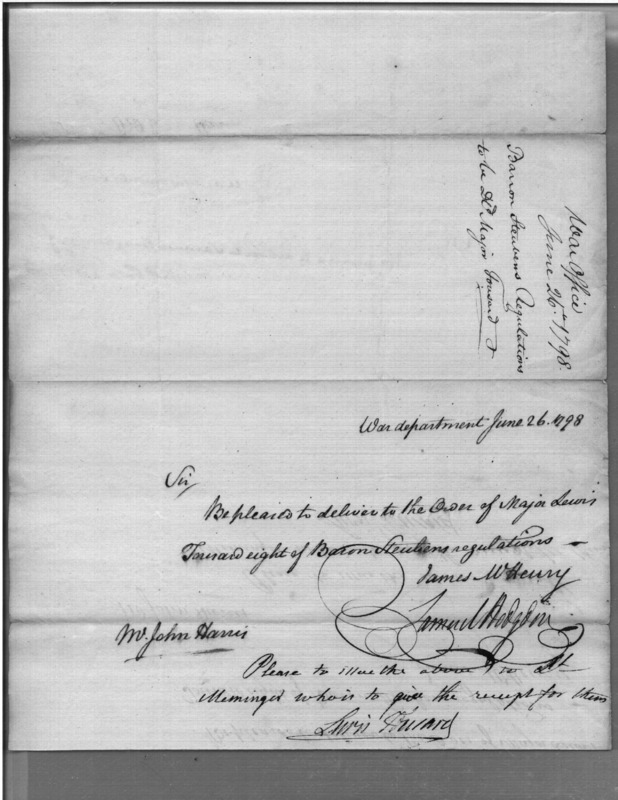 War Office
June 26th 1798.
Barron Steubens Regulations
to be Dd Major Tousard &
War department June 26. 1798
Sir,
Be pleased to deliver to the Order of Major Lewis
Tousard eight of Baron Steubens regulations
James McHenry
Samuel Hodgdon
Mr. John Harris
Please to issue the above to
who is to give the receipt for them
Lewis Tousard